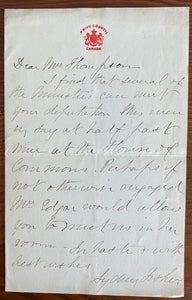 PRIVY COUNCIL
CANADA
Dear Mr Thompson
I find that several of
the Ministers can meet
your deputation this
say at half past
nine at the House of
Commons. Perhaps if
not otherwise engaged
Mr Edgar would allow
you to meet us in her
room - In haste & with
best wishes
Sydney Fisher